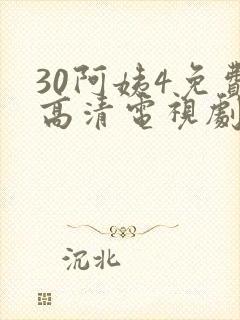 30阿姨4免費
高清電視劇
沉北